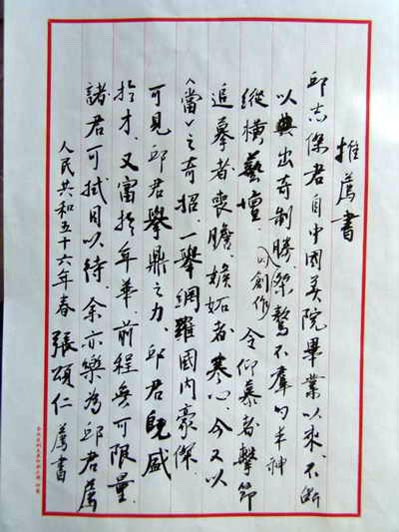 推薦書
邱志傑君自中國美院畢業以來、不斷
以典出奇制勝、桀驁不羣的丰神
縱橫藝壇、以創作令仰慕者擊節
追摹者喪膽、嫉妬者寒心、今又以
《當》之奇招、一舉網羅國內豪傑、
可見邱君舉鼎之力、邱君既盛
於才、又富於年華、前程無可限量、
諸君可拭目以待、余亦樂為邱君薦
人民共和五十六年春 張頌仁 薦書